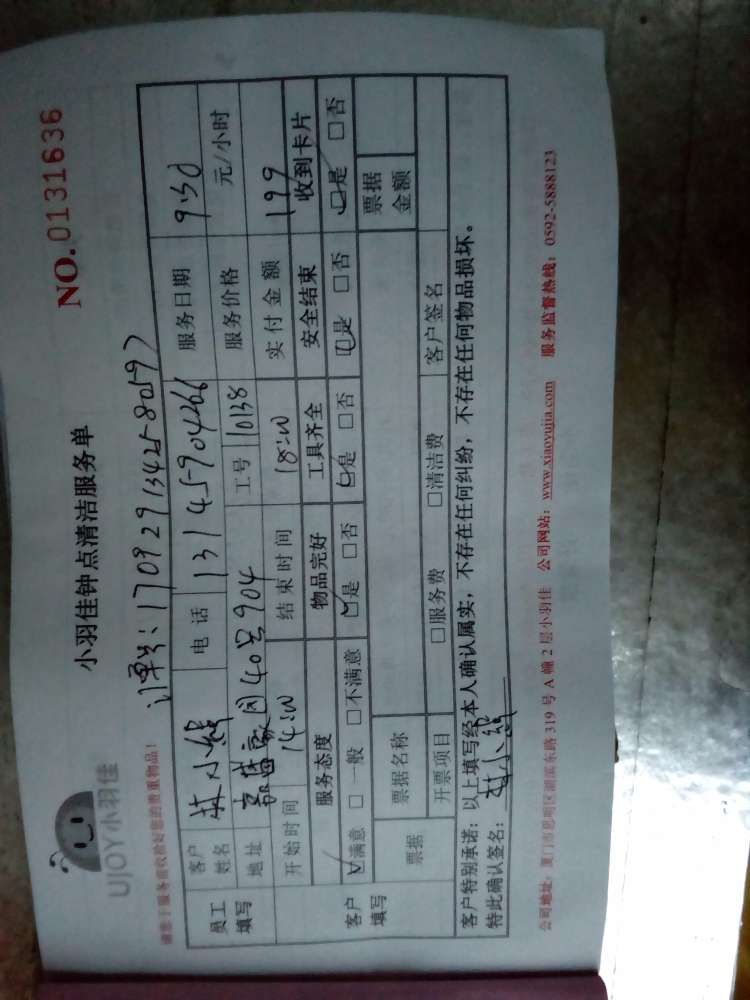 UJOY小羽佳
小羽佳钟点清洁服务单
NO.0131636
请您于服务前收检好您的贵重物品!
订单号:1709291342580597
员工填写 客户姓名 林小 电话 13145904266 服务日期 9.30
地址 40号904 工号 10138 服务价格 元/小时
开始时间 14:00 结束时间 18:00 实付金额 199
客户填写 服务态度 物品完好 工具齐全 安全结束 收到卡片
☑满意 □一般 □不满意 ☑是 □否 ☑是 □否 ☑是 □否 ☑是 □否
票据 票据名称 票据金额
开票项目 □服务费 □清洁费 客户签名
客户特别承诺:以上填写经本人确认属实,不存在任何纠纷,不存在任何物品损坏。
特此确认签名:林小
公司地址:厦门市思明区湖滨东路319号A幢2层小羽佳 公司网站:www.xiaoyujia.com 服务监督热线:0592-5888123